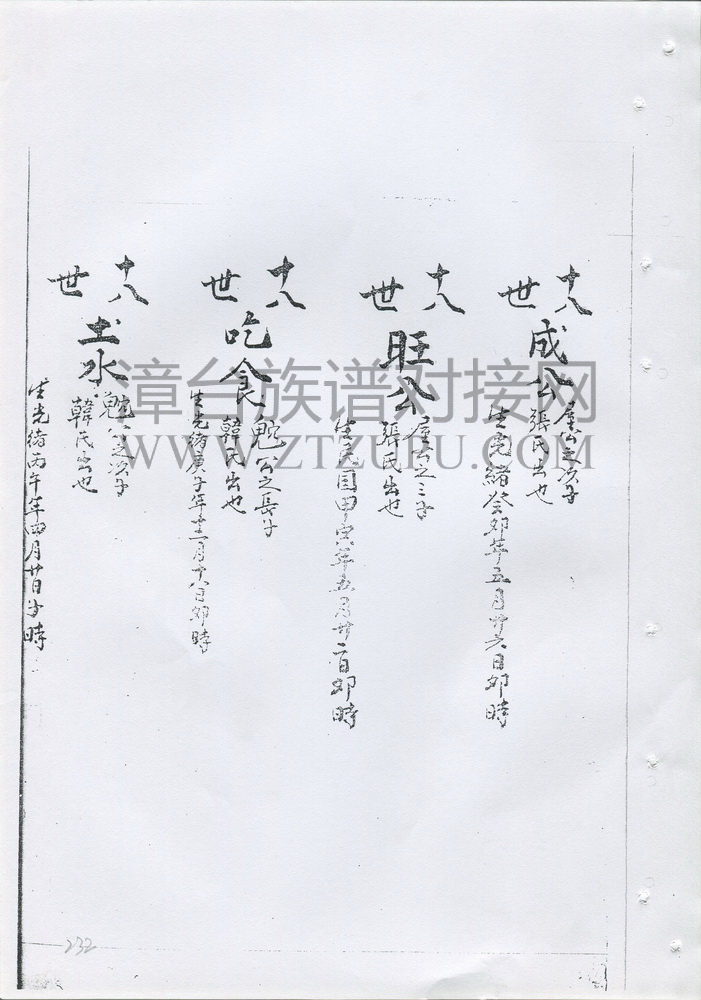 十八世
成公
公之次子
張氏出也
生光緒癸卯年五月廿六日卯時
十八世
旺公
公之三子
張氏出也
生民國甲寅年五月廿二日卯時
十八世
吃食
公之長子
韓氏出也
生光緒庚子年十二月十八日卯時
十八世
土水
公之次子
韓氏出也
生光緒丙午年四月廿日子時
漳台族谱对接网
WWW.ZTZUPU.COM
232